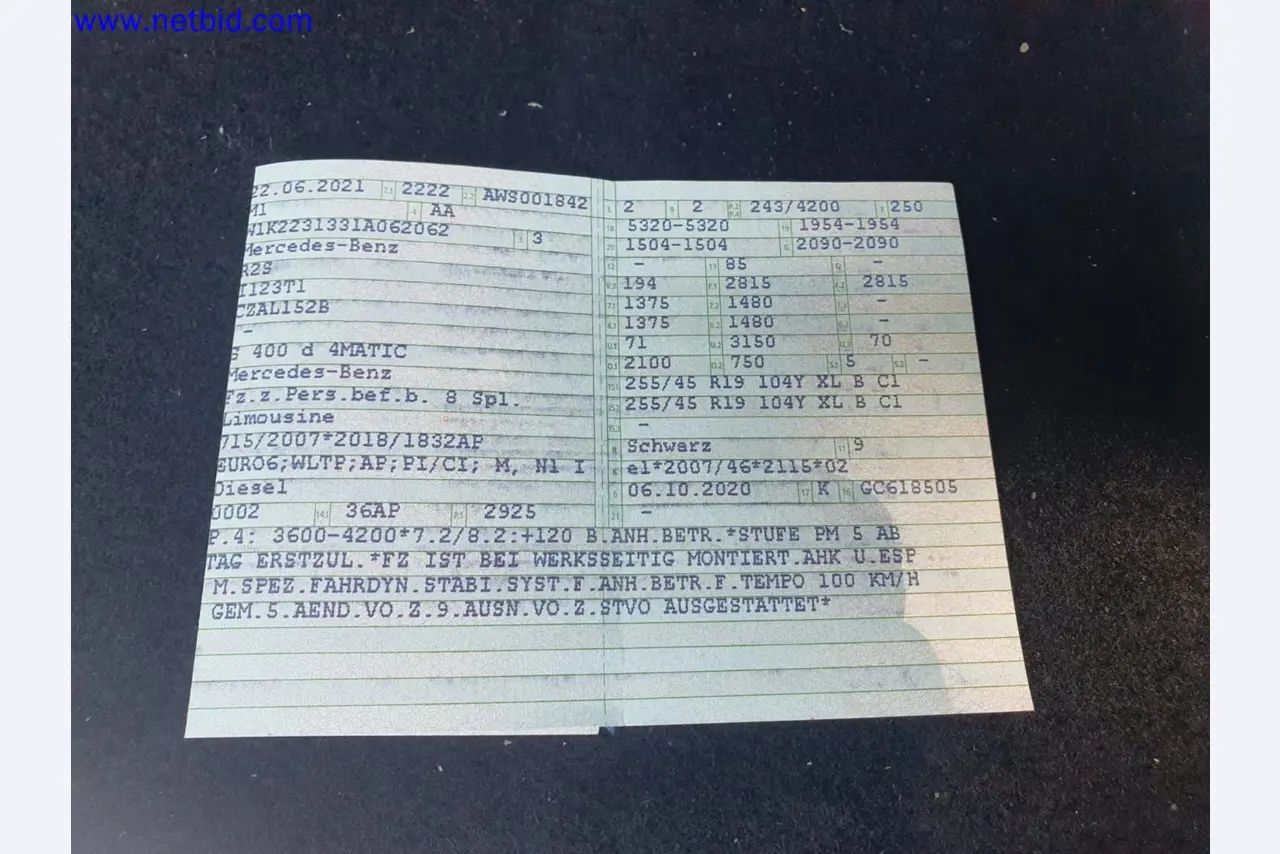 www.netbid.com
22.06.2021 2222 AWS001842
M1 AA
W1K2231331A062062 3
Mercedes-Benz
R2S
I123T1
CZAL152B
-
S 400 d 4MATIC
Mercedes-Benz
Fz.z.Pers.bef.b. 8 Spl.
Limousine
715/2007*2018/1832AP
EURO6;WLTP;AP;PI/CI; M, N1 I
Diesel
0002 36AP 2925
2 2 243/4200 250
5320-5320 1954-1954
1504-1504 2090-2090
- 85 -
194 2815 2815
1375 1480 -
1375 1480 -
71 3150 70
2100 750 5 -
255/45 R19 104Y XL B C1
255/45 R19 104Y XL B C1
-
Schwarz 9
e1*2007/46*2115*02
06.10.2020 K GC618505
-
P.4: 3600-4200*7.2/8.2:+120 B.ANH.BETR.*STUFE PM 5 AB
TAG ERSTZUL.*FZ IST BEI WERKSSEITIG MONTIERT.AHK U.ESP
M.SPEZ.FAHRDYN.STABI.SYST.F.ANH.BETR.F.TEMPO 100 KM/H
GEM.5.AEND.VO.Z.9.AUSN.VO.Z.STVO AUSGESTATTET*